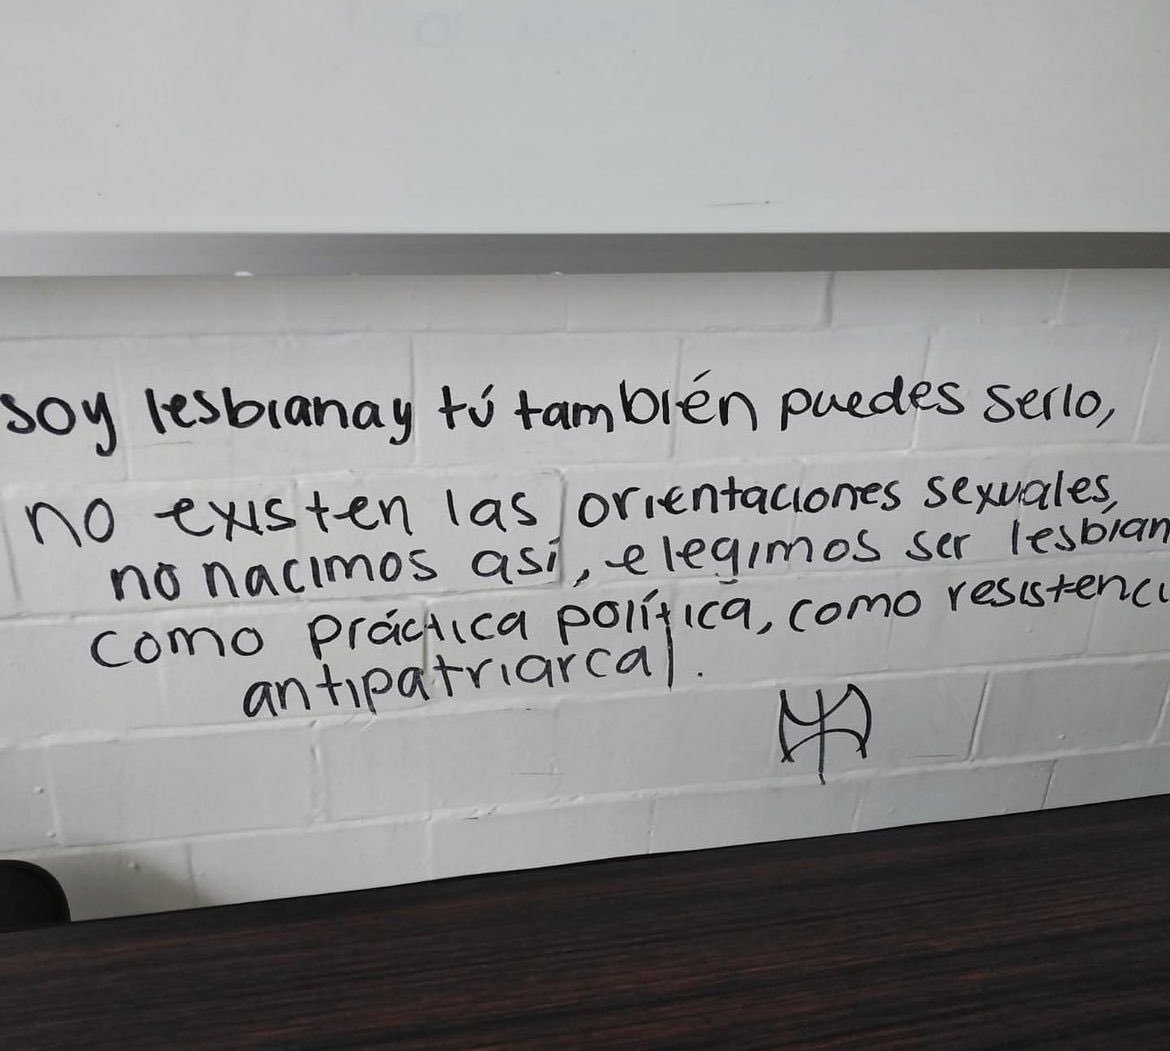 soy lesbiana y tú también puedes serlo,
no existen las orientaciones sexuales,
no nacimos así, elegimos ser lesbian
como práctica política, como resistenci
antipatriarcal.